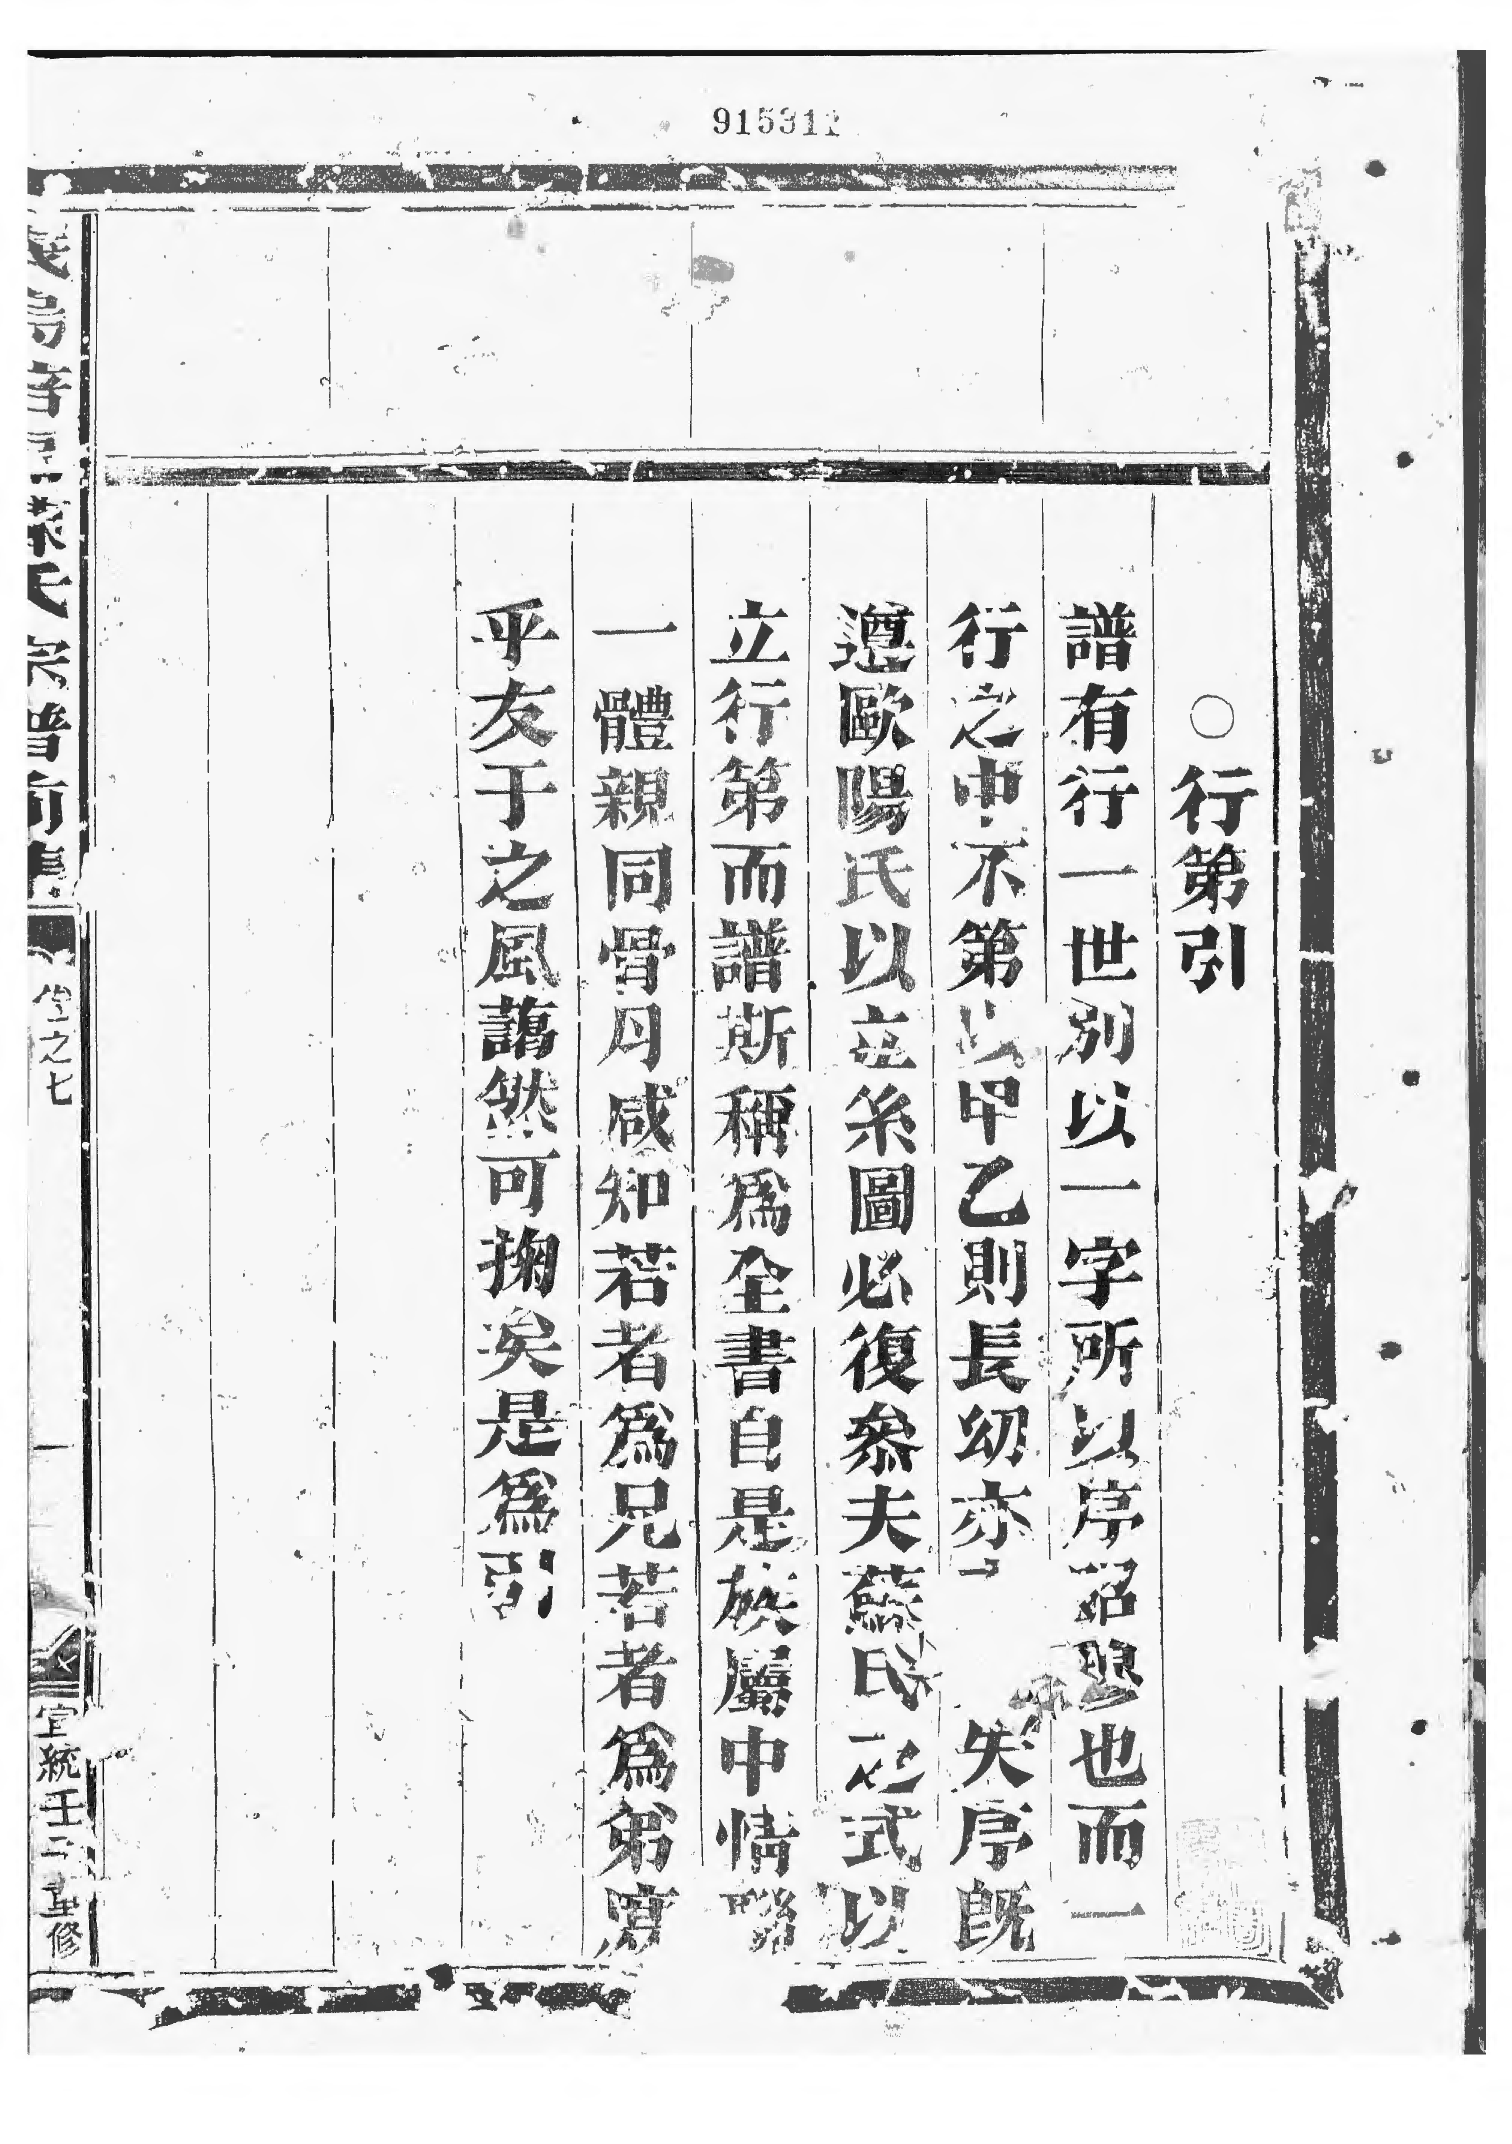 915312
○行第引
譜有行一世別以一字所以序昭穆也而一
行之中不第以甲乙則長幼亦失序既
遵歐陽氏以立系圖必復參夫蘇氏之式以
立行第而譜斯稱為全書自是族屬中情聯
一體親同骨月咸知若者為兄若者為弟庶
乎友于之風藹然可掬矣是為引
氏宗譜前集
卷之七
一
宣統壬子重修